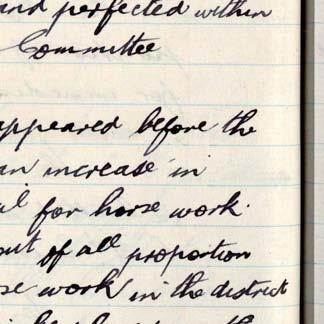 and perfected within
Committee
appeared before the
an increase in
for horse work
out of all proportion
work in the district